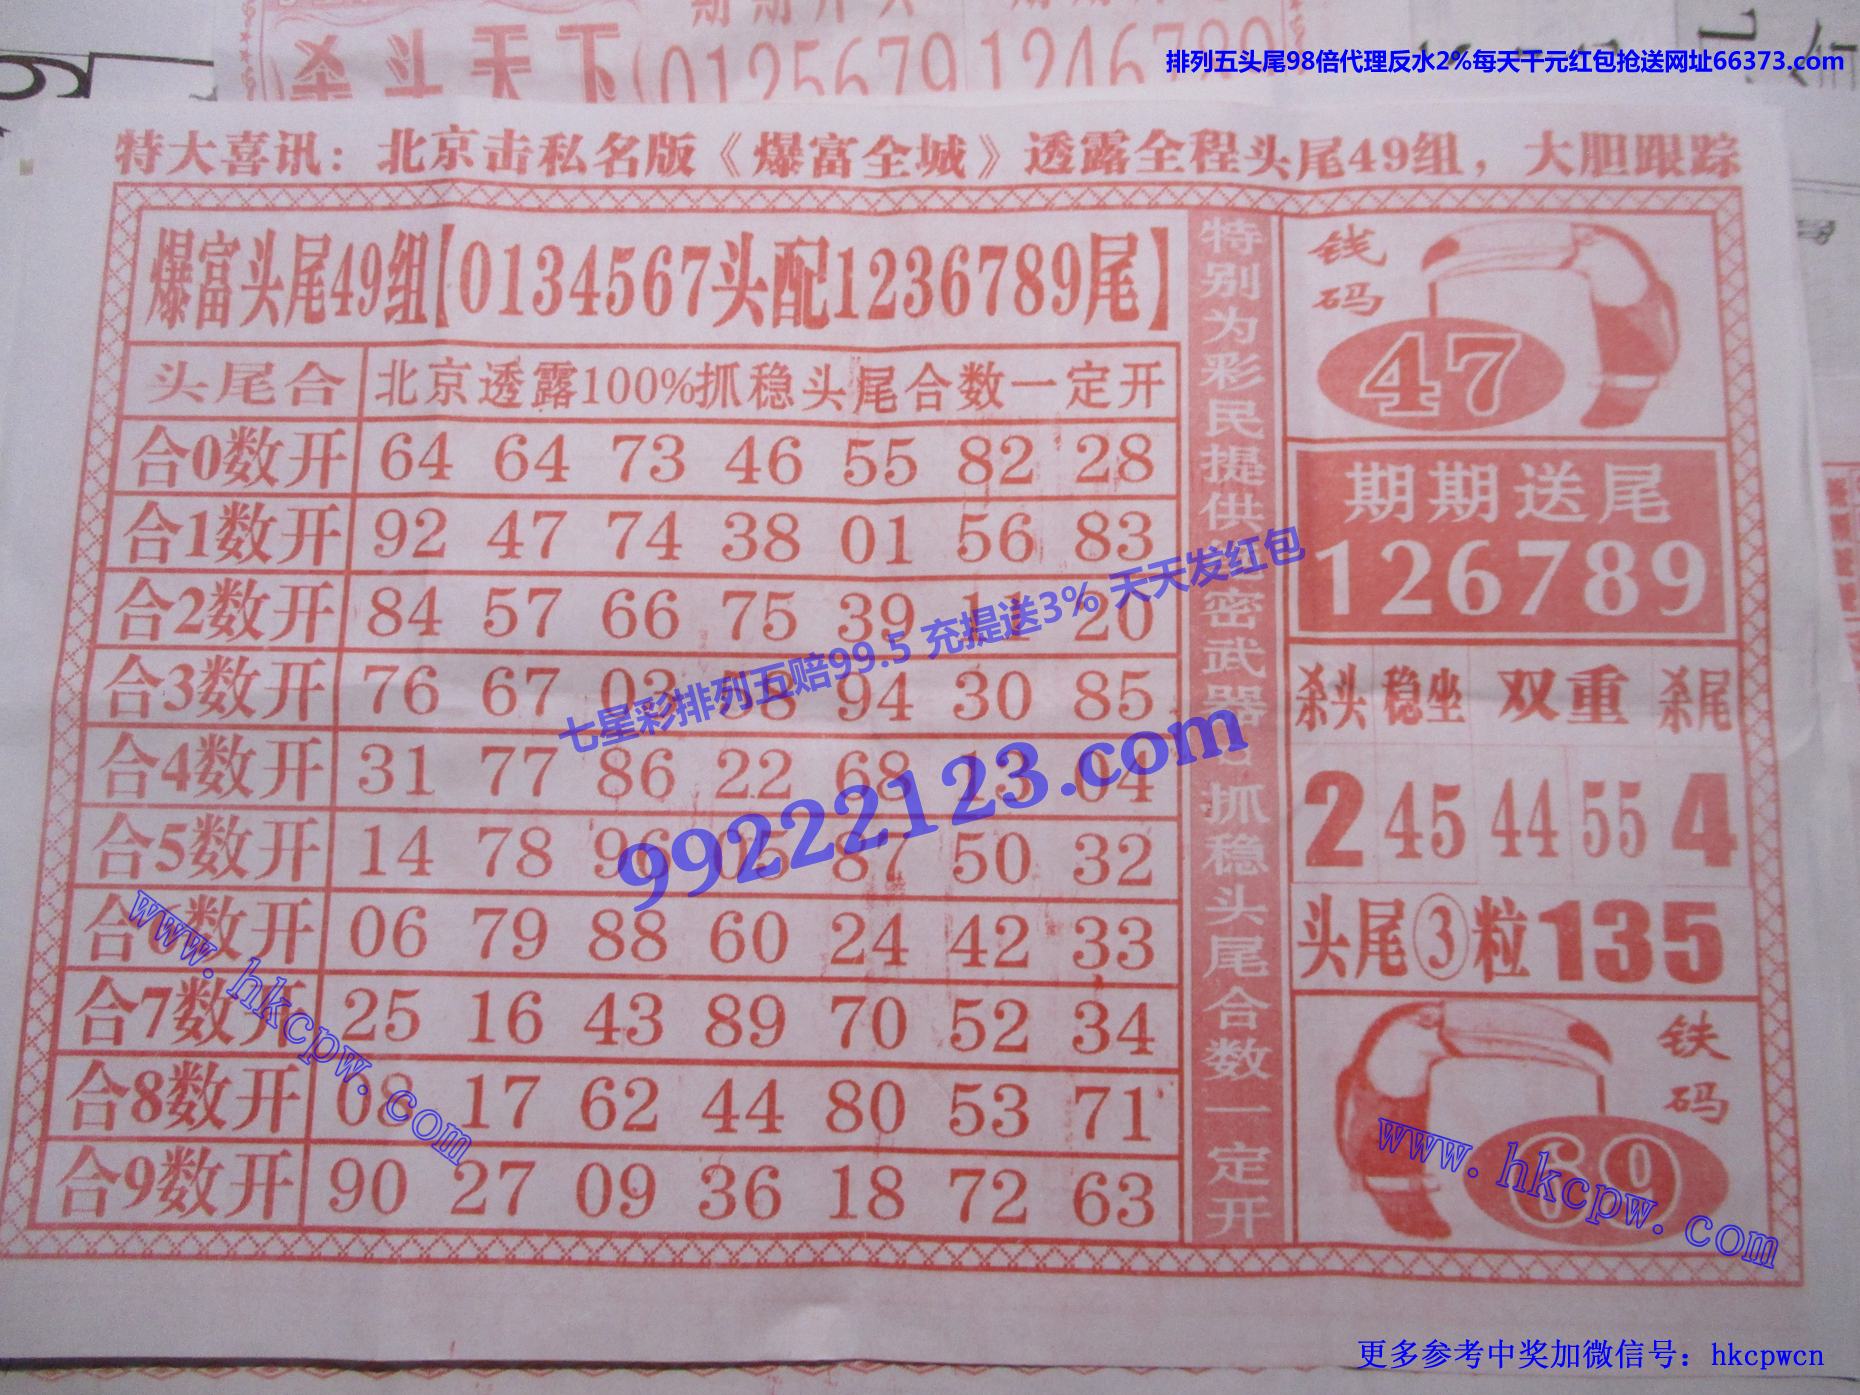 杀头天下
01256791246789
排列五头尾98倍代理反水2%每天千元红包抢送网址66373.com
特大喜讯：北京击私名版《爆富全城》透露全程头尾49组，大胆跟踪
爆富头尾49组【0134567头配1236789尾】
头尾合 北京透露100%抓稳头尾合数一定开
合0数开 64 64 73 46 55 82 28
合1数开 92 47 74 38 01 56 83
合2数开 84 57 66 75 39 11 20
合3数开 76 67 03 58 94 30 85
合4数开 31 77 86 22 68 13 04
合5数开 14 78 96 05 87 50 32
合6数开 06 79 88 60 24 42 33
合7数开 25 16 43 89 70 52 34
合8数开 08 17 62 44 80 53 71
合9数开 90 27 09 36 18 72 63
特别为彩民提供
密武器
抓稳头尾合数一定开
钱码
47
期期送尾
126789
杀头 稳坐 双重 杀尾
2 45 44 55 4
头尾③粒135
铁码
69
七星彩排列五赔99.5 充提送3% 天天发红包
99222123.com
www.hkcpw.com
www.hkcpw.com
更多参考中奖加微信号：hkcpwcn